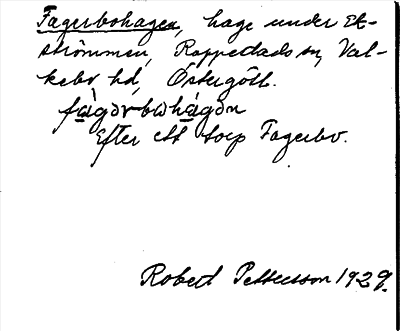 Fagerbohagen, hage under Ek-
strömmen, Rappestads sn, Val-
kebo hd, Östergötl.
fàgərbωhágən
Efter ett torp Fagerbo.
Robert Pettersson 1929.